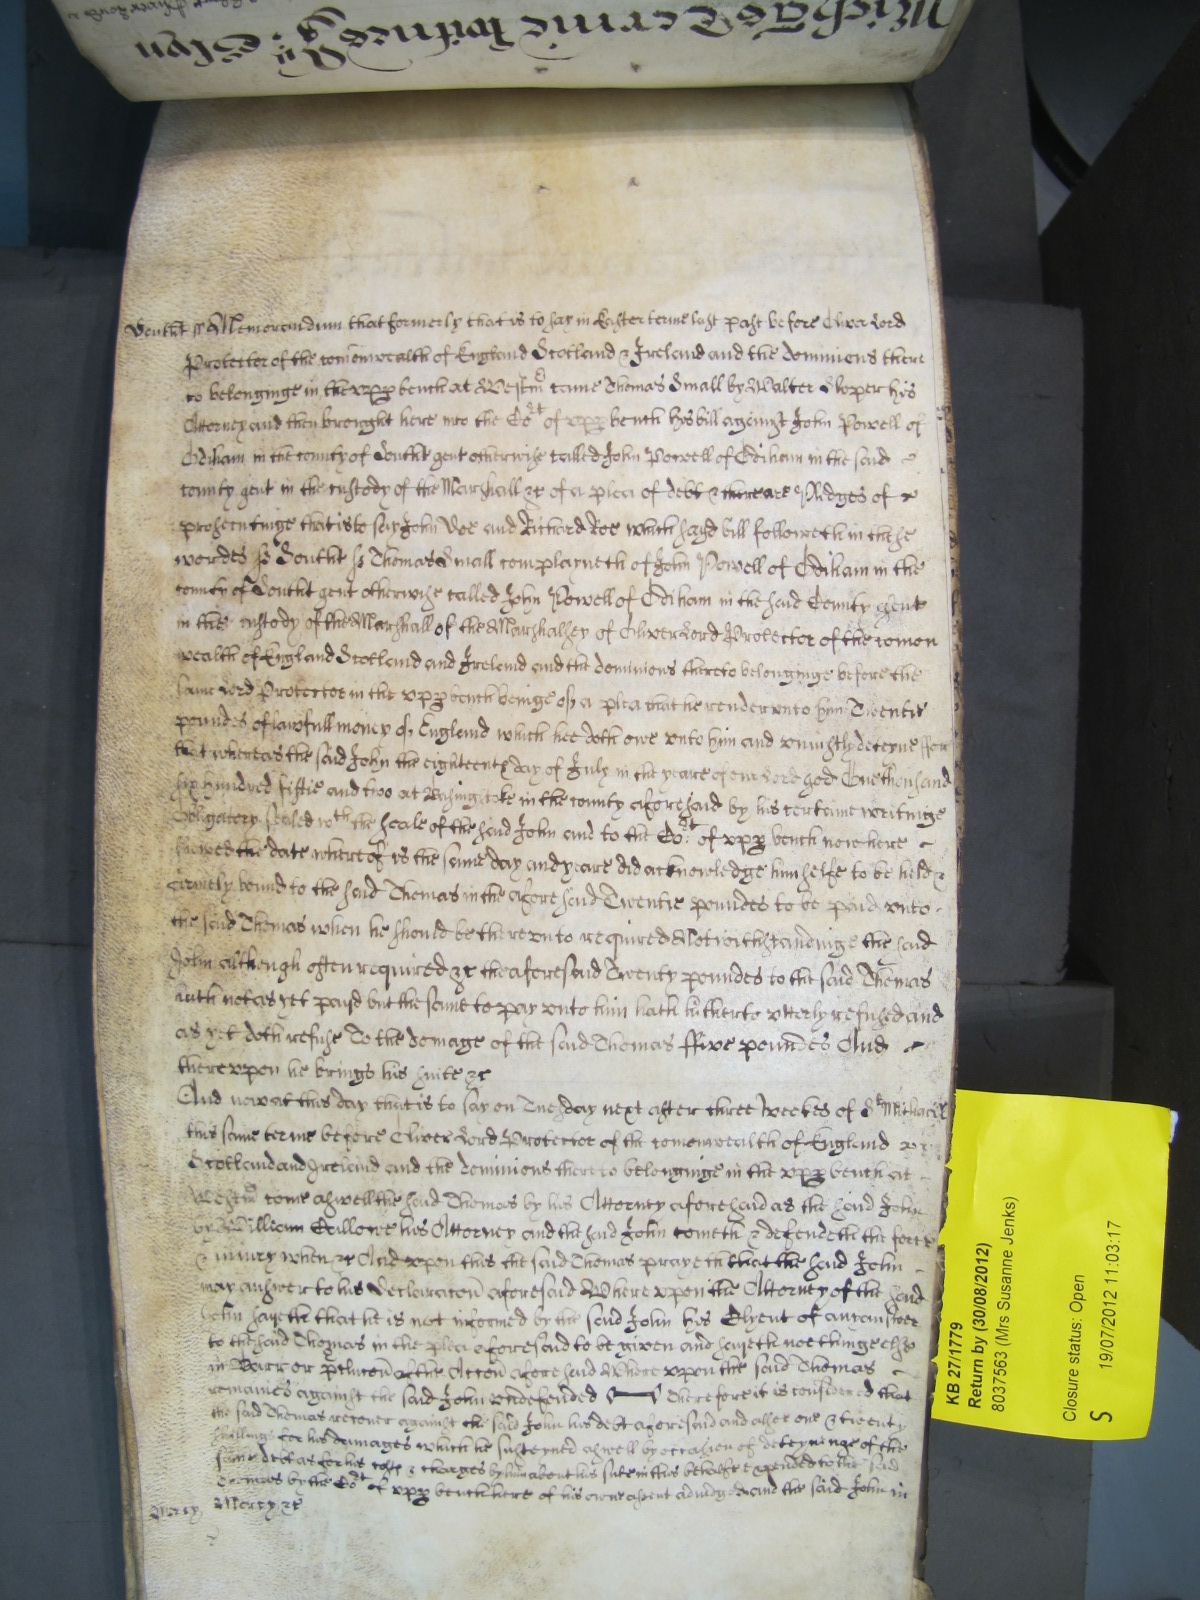 Michaes Terme witnes
Southt ss Memorandum that formerly that is to say in Easter terme last past before Oliver Lord
Protector of the comonwealth of England Scotland & Ireland and the dominions there
to belonginge in the upp bench at Westm came Thomas Small by Walter Sloper his
Attorney and then brought here into the Cort of upp bench his bill against John Powell of
Odiham in the county of Southt gent otherwise called John Powell of Odiham in the said
county gent in the custody of the Marshall &c of a plea of debt & there are Pledges of
prosecutinge that is to say John Doe and Richard Roe which said bill followeth in these
wordes ss Southt ss Thomas Small complayneth of John Powell of Odiham in the
county of Southt gent otherwise called John Powell of Odiham in the said County gent
in the custody of the Marshall of the Marshalsey of Oliver Lord Protector of the comon
wealth of England Scotland and Ireland and the dominions thereto belonginge before the
same Lord Protector in the upp bench beinge of a plea that he render unto him Twentie
poundes of lawfull money of England which hee doth owe unto him and uniustly deteyne ffor
that whereas the said John the eighteenth day of July in the yeare of our Lord god One thousand
six hundred fiftie and two at Basingstoke in the county aforesaid by his certaine writinge
Obligatory sealed wth the seale of the said John and to the Cort of upp bench now here
shewed the date whereof is the same day and yeare did acknowledge himselfe to be held &
firmely bound to the said Thomas in the aforesaid Twentie poundes to be paid unto
the said Thomas when he should be thereunto required Notwithstandinge the said
John although often required &c the aforesaid Twenty poundes to the said Thomas
hath not as yet payd but the same to pay unto him hath hitherto utterly refused and
as yet doth refuse To the damage of the said Thomas ffive poundes And
thereupon he brings his suite &c
And now at this day that is to say on Tuesday next after three weekes of St Michaell
this same terme before Oliver Lord Protector of the comonwealth of England
Scotland and Ireland and the dominions thereto belonginge in the upp bench at
Westm come aswell the said Thomas by his Attorney aforesaid as the said John
by William his Attorney and the said John cometh & defendeth the force
& iniury when &c And upon this the said Thomas prayeth that the said John
may answer to his Declaracon aforesaid Whereupon the Attorney of the said
John sayeth that he is not informed by the said John his Clyent of any answer
to the said Thomas in the plea aforesaid to be given and sayeth noe thinge else
in Barr or of the Accon aforesaid Whereupon the said Thomas
remaines against the said John undefended Therefore it is considered that
the said Thomas recover against the said John his debt aforesaid and alsoe one & twenty
shillings for his damages which he susteyned aswell by occasion of deteyninge of the
same debt as for his costs & charges by him about his suite in this behalfe expended to the said
Thomas by the Cort of upp bench here of his owne assent adiudged and the said John in
Mercy Mercy &c
KB 27/1779
Return by (30/08/2012)
8037563 (Mrs Susanne Jenks)
Closure status: Open
S 19/07/2012 11:03:17